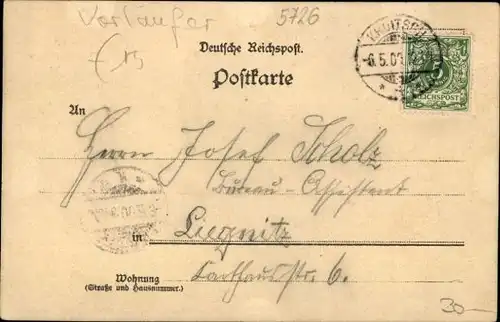 Vorläufer
5726
€15
Deutsche Reichspost.
Postkarte
KROITSCH
-6.5.00
5
REICHSPOST
An
Herrn Josef Scholz
Bureau-Assistent
in Liegnitz
Wohnung
(Straße und Hausnummer.)
Carthausstr. 6.
30-